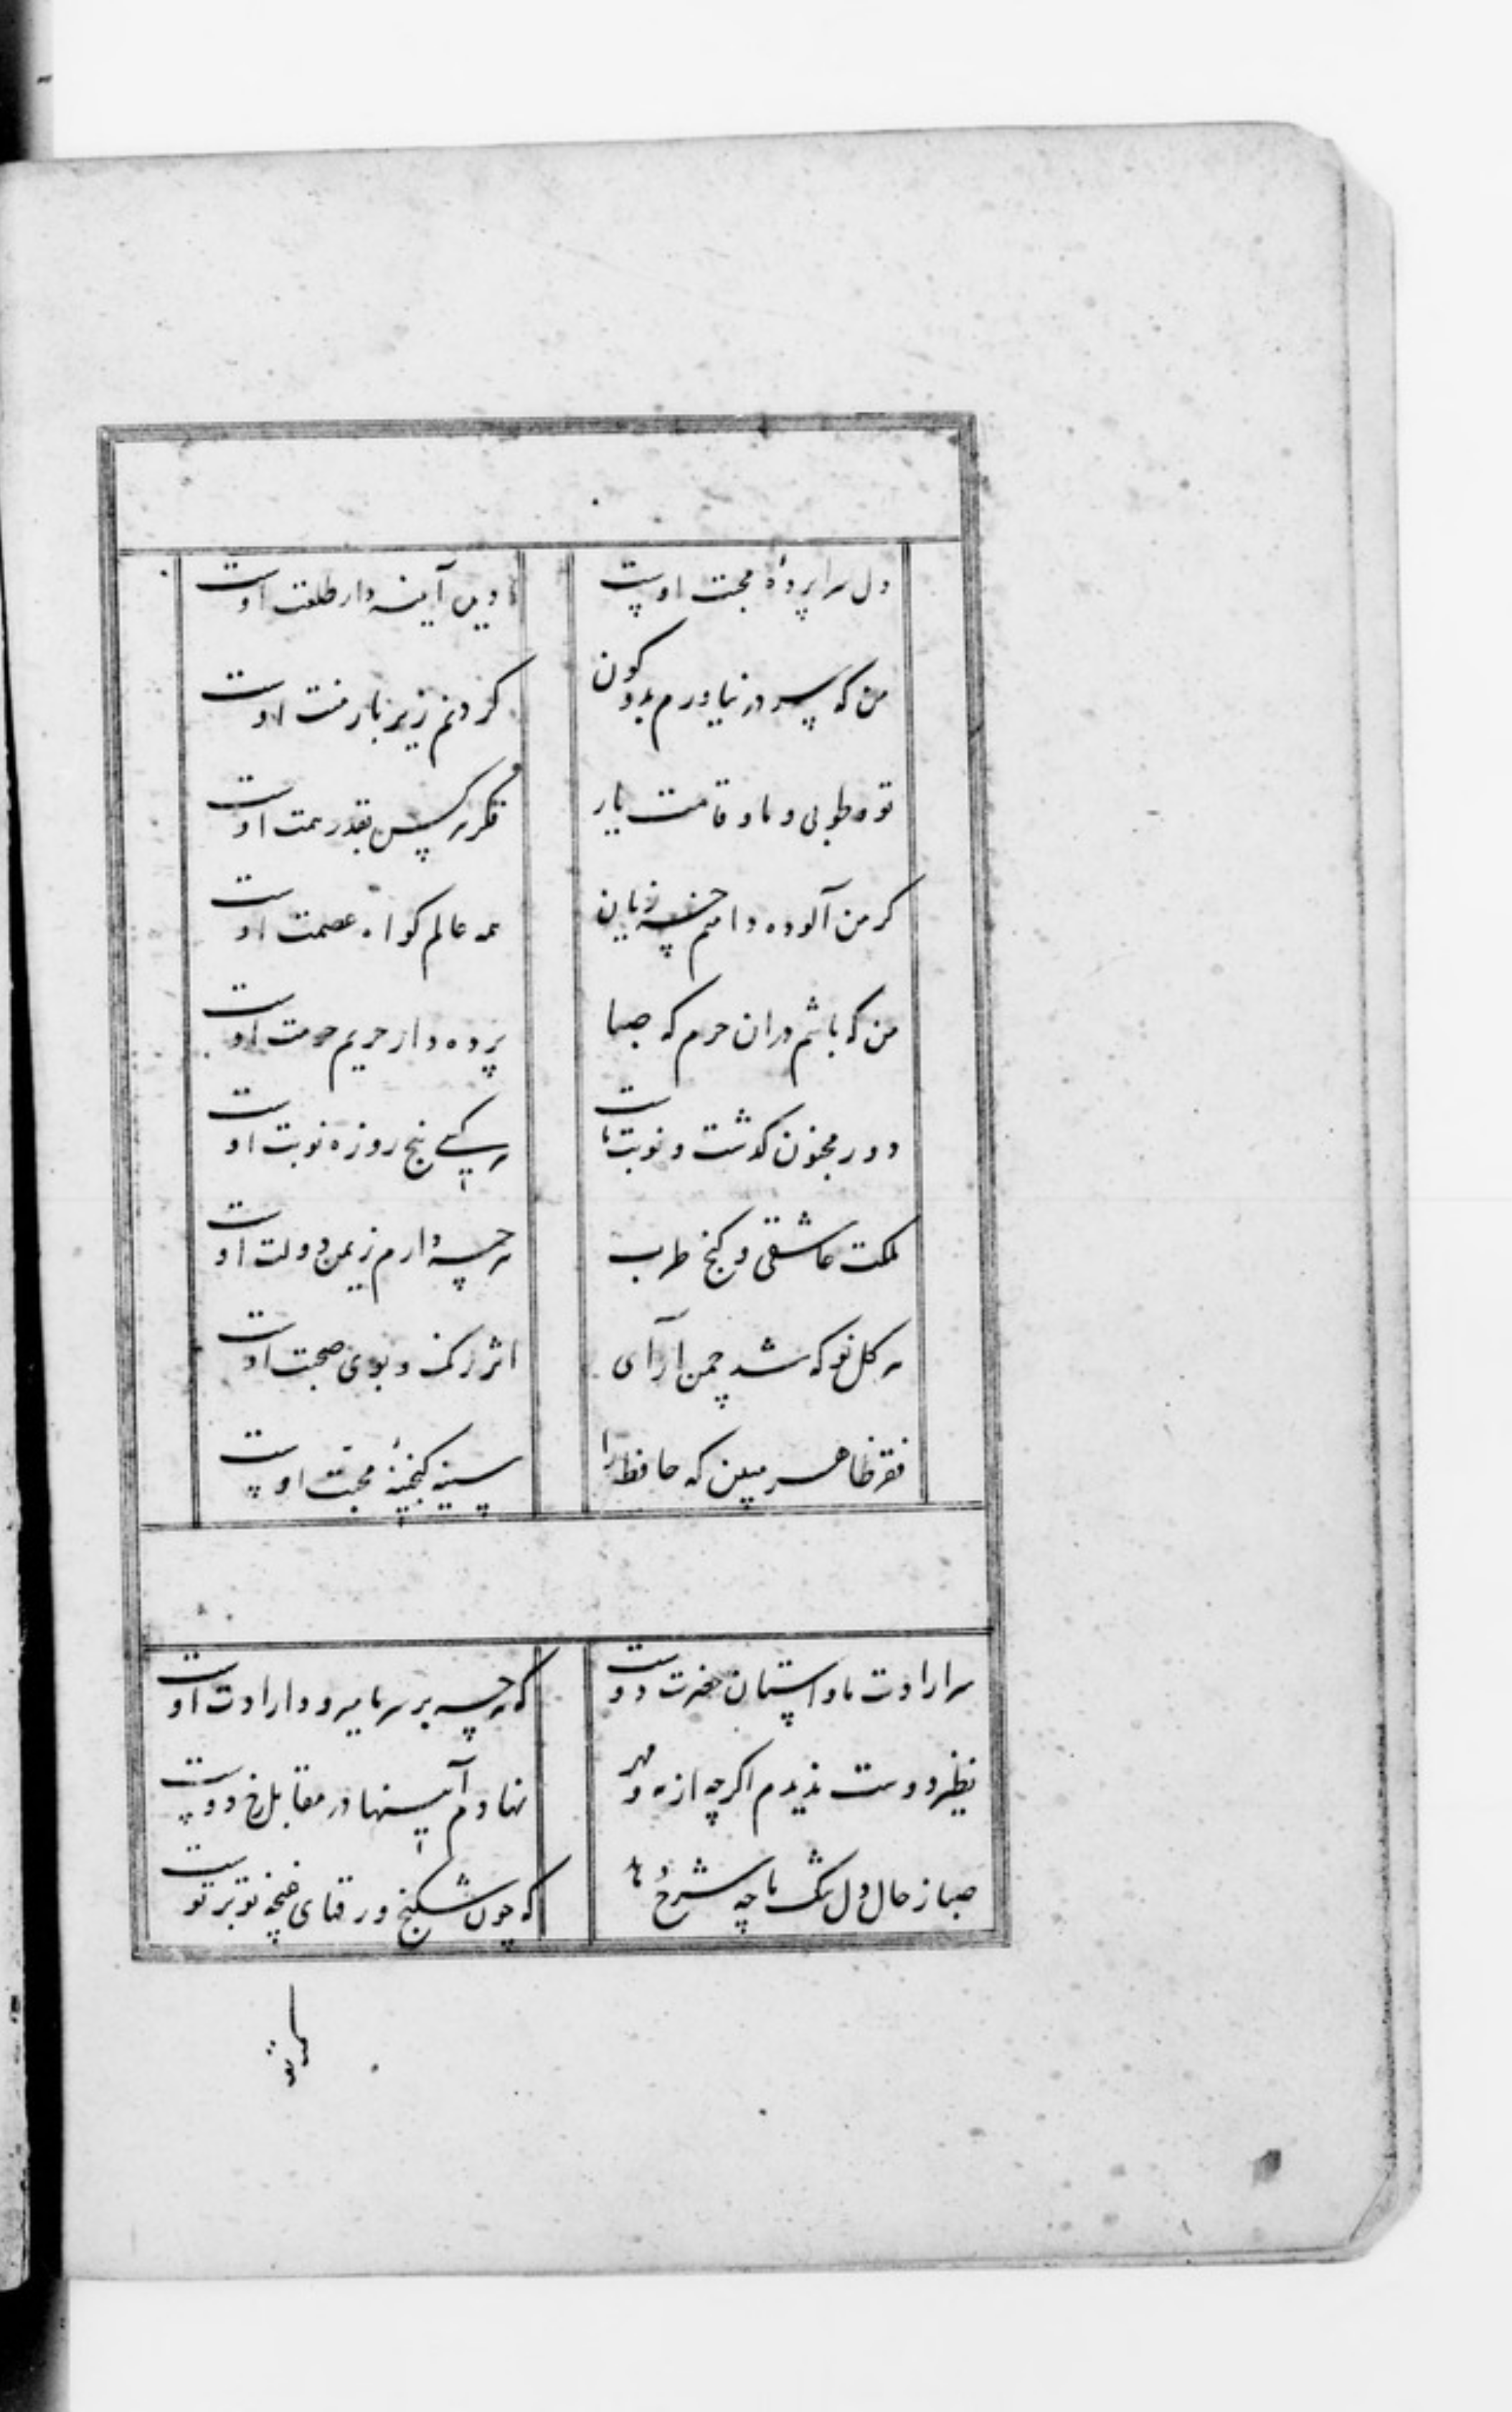 دل سراپردهٔ محبت اوست دیده آینه دار طلعت اوست
من که سر در نیاورم بدو کون کردنم زیر بار منت اوست
تو و طوبی و ما و قامت یار فکر هر کس بقدر همت اوست
کر من آلوده دامنم چه زیان همه عالم کواه عصمت اوست
من که باشم دران حرم که صبا پرده دار حریم حرمت اوست
دور مجنون کذشت و نوبت ماست هر کسی پنج روزه نوبت اوست
ملکت عاشقی و کنج طرب هر چه دارم ز یمن دولت اوست
هر کل نو که شد چمن آرای اثر رنک و بوی صحبت اوست
فقر ظاهر مبین که حافظ را سینه کنجینهٔ محبت اوست
سر ارادت ما و استان حضرت دوست که هر چه بر سر ما میرود ارادت اوست
نظیر دوست ندیدم اکر چه از مه و مهر نهادم آینها در مقابل رخ دوست
صبا ز حال دل تنک ما چه شرح دهد که چون شکنج ورقهای غنچه تو بر توست